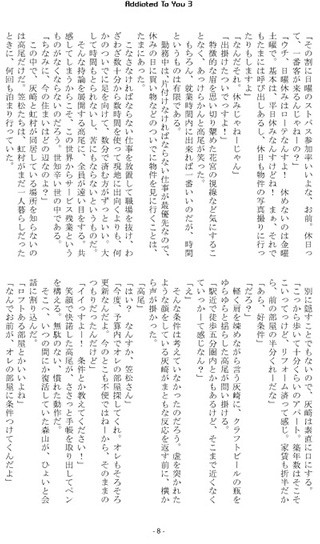 Addicted To You 3
「その割に日曜のストバス参加率いいよな、お前。休日って、一番客が来るんじゃねーの？」
「ウチ、日曜休みはローテなんすよ！　休めないのは金曜土曜で、基本は半日休みなんすけどね！　まぁ、それでもたまには呼び出しあるし、休日も物件の写真撮りに行ったりもしますよ」
「なんだそれ、休みじゃねーじゃん」
「出掛けたついでっすよ！」
特徴的な眉を思い切り顰めた花宮の視線など気にすることなく、あっけらかんと高尾が笑った。
もちろん、就業時間内に出来れば一番いいのだが、時間というものは有限である。
勤務中は、片付けなければならない仕事が最優先なので、休みの日に買い物などのついでに物件を見に行くことは、たまにある。
こなさなければならない仕事を放置して職場を抜け、わざわざ数十分から数時間を使って現地に出向くよりも、何かのついでに足を向けて、数分で済む方がずっといい。大して時間もとられないし、苦にもならないというものだ。
そんな持論を展開する高尾に、全員が遠い目をする。共感してしまうからこそ、この世界からサービス残業というものがなくならないという世知辛い世の中である。
「ちなみに、今の住まいはどの辺なのよ？」
この中で、灰崎と虹村が同居している場所を知らないのは高尾だけだ。笠松たちは、虹村がまだ一人暮らしだったときに、何回も泊まり行っていた。
別に隠すことでもないので、灰崎は素直に口にする。
「こっから歩いて十分くらいのアパート。築年数はそこそこいってっけど、リフォーム済って感じ。家賃も折半だから、前の部屋の半分くれーだな」
「あら、好条件」
「だろ？」
軽く肩を竦めながら言う灰崎に、クラフトビールの瓶をゆらゆら揺らしながら高尾が問い掛ける。
「駅近で徒歩五分圏内とかもあるけど、そこまで近くなくていっかーて感じなん？」
「え」
そんな条件は考えていなかったのだろう。虚を突かれたような顔をしている灰崎がまともな反応を返す前に、横から声が掛かった。
「高尾」
「はい？　なんすか、笠松さん」
「今度、予算内でオレの部屋探してくれ。オレもそろそろ更新なんだよ。今のとこも不便ではねーから、そのままのつもりだったんだけど」
「イイっすよー！　条件とか教えてください！」
笑顔で快諾した高尾が、ささっと手帳を取り出してペンを構える。無駄のない、慣れた動作だ。
そこへ、いつの間にか復活していた森山が、ひょいと会話に割り込んだ。
「ロフトある部屋とかいいよね」
「なんでお前が、オレの部屋に条件つけてくんだよ」
- 8 -